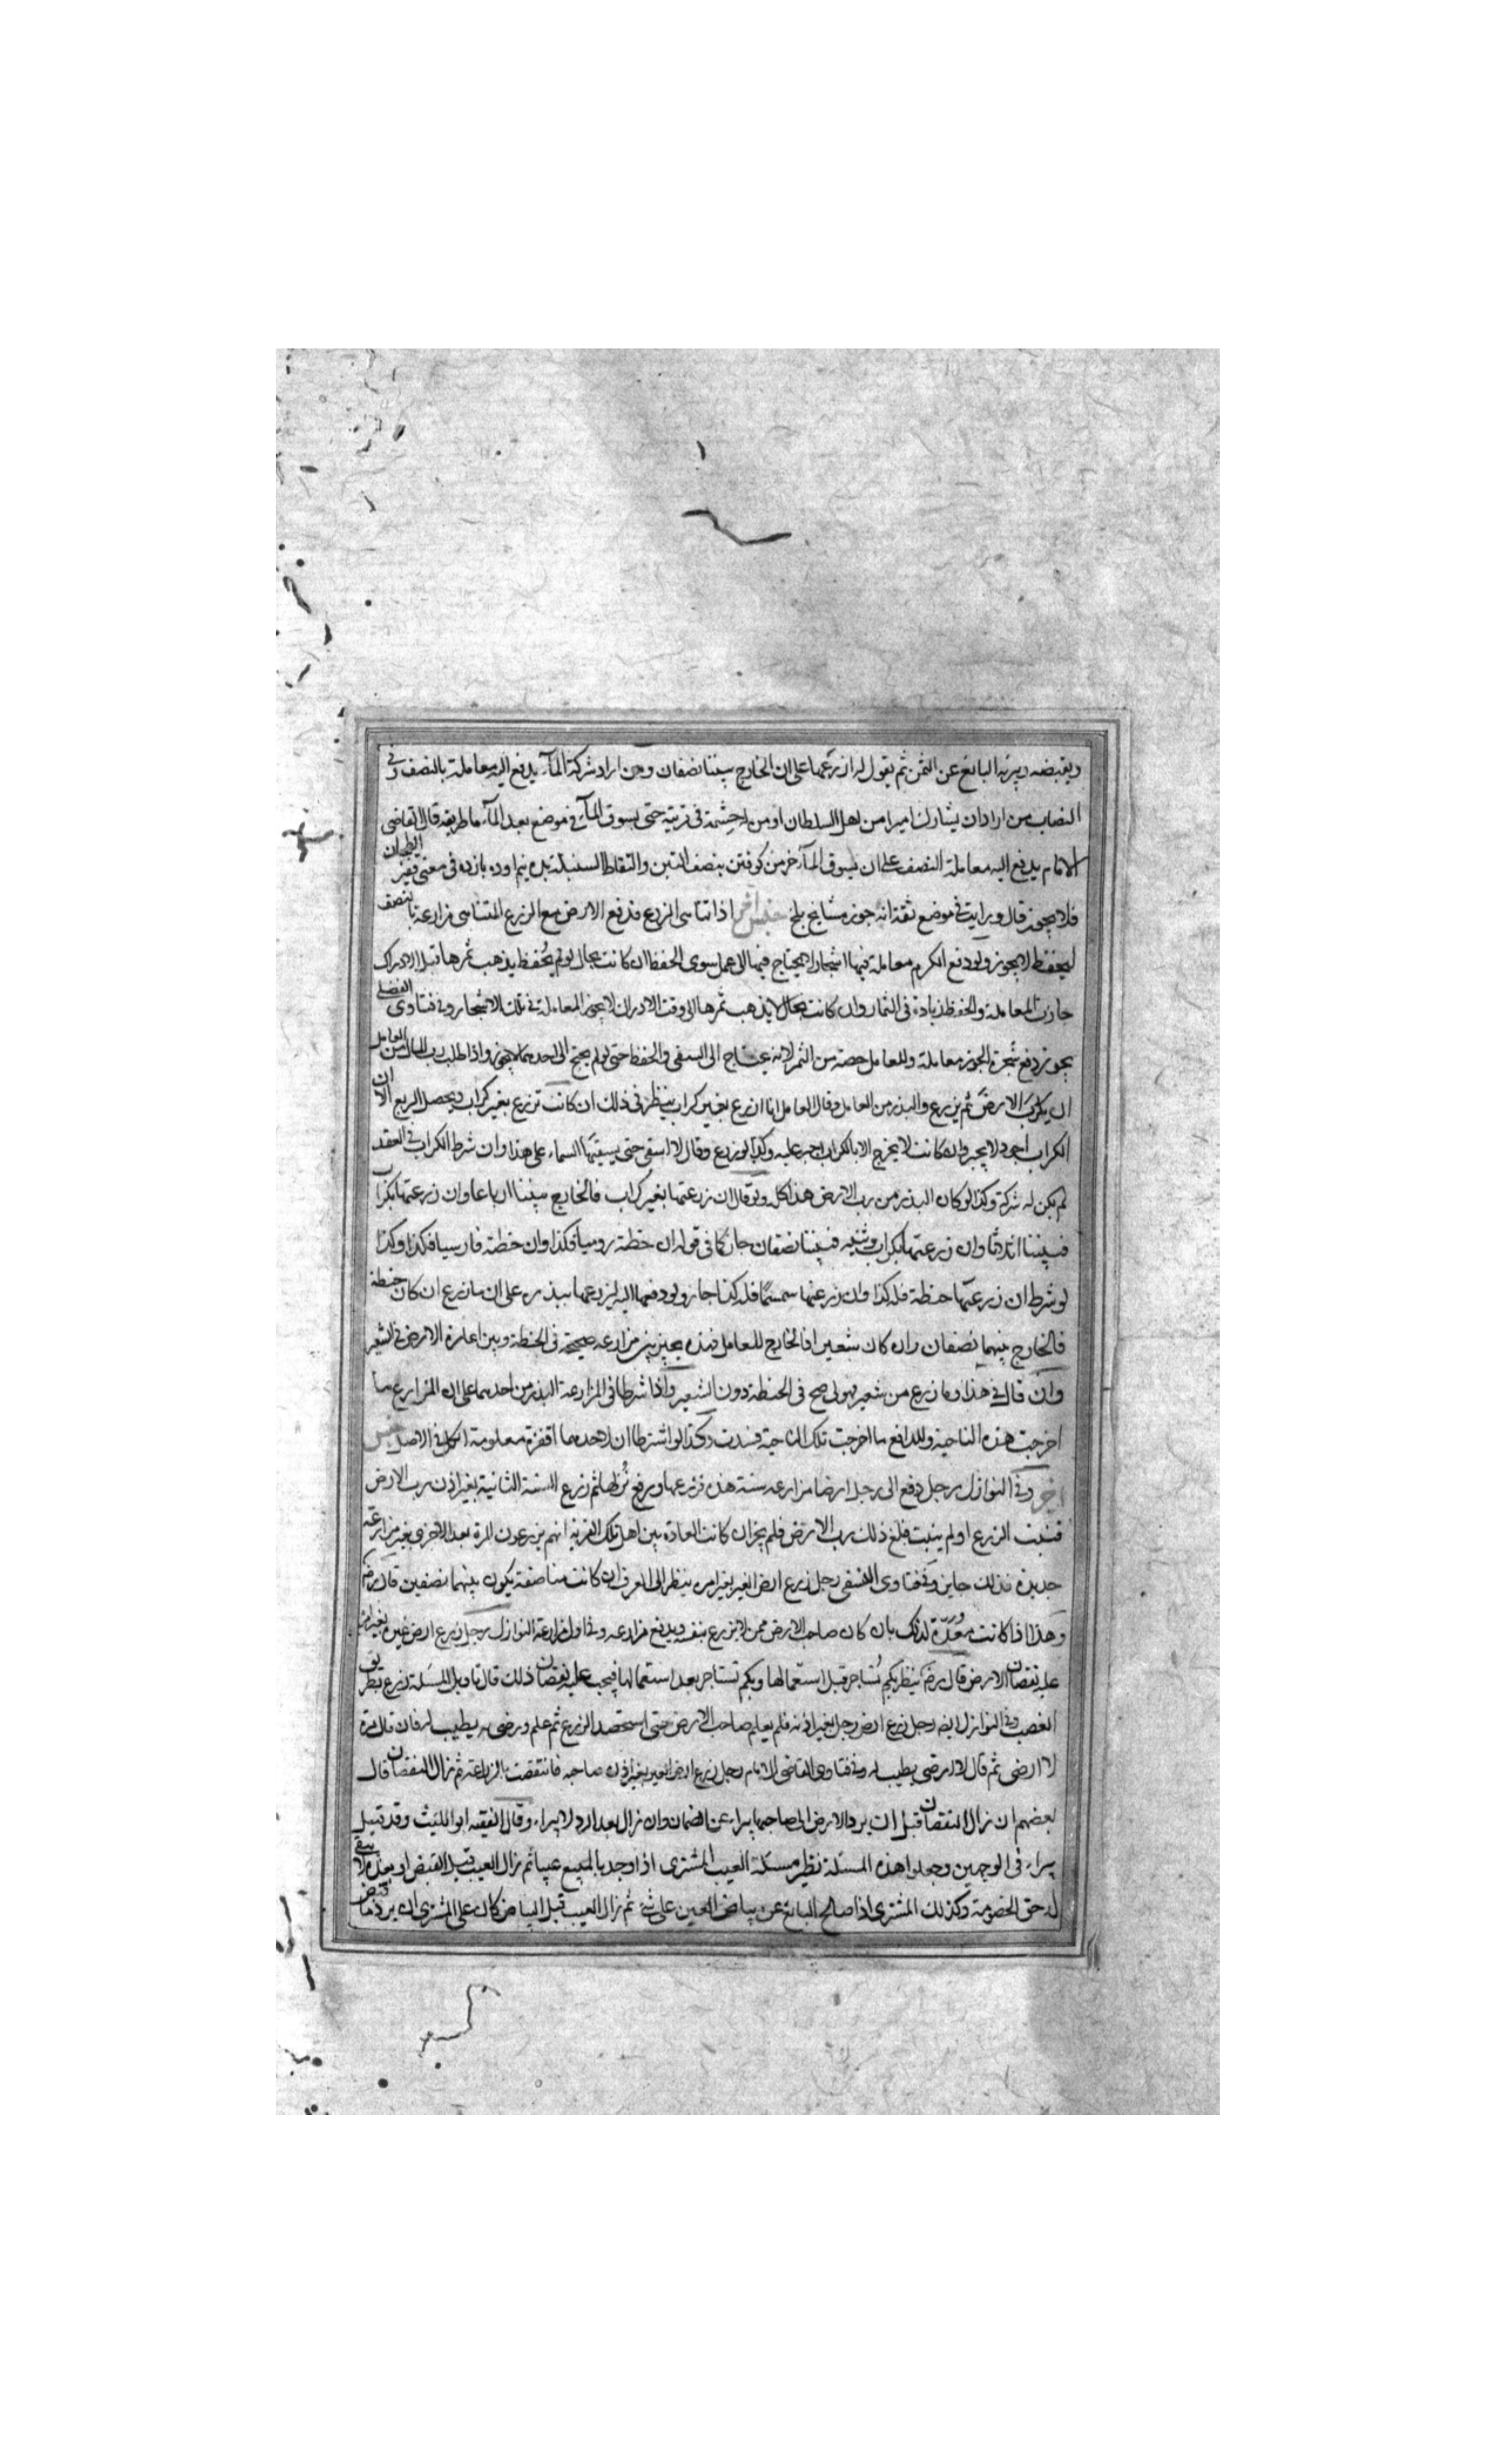 ويقبضه ويبرئه البائع عن الثمن ثم يقول له ازرعها على ان الخارج بيننا نصفان ومن اراد شركة المآء يدفع اليه معاملة بالنصف وفي
النصاب من اراد ان يشارك اميرا من اهل السلطان او من له حشمة في قرية حتى يسوق المآء في موضع بعد المآء ما طريقه قال القاضي
الامام يدفع اليه معاملة النصف على ان يسوق المآء خرمن كوفتن بنصف التبن والتقاط السنبلة بده نيم او ده يازده في معنى قفيز الطحان
فلا يجوز قال ورايت في موضع ثقة انه جوز مشايخ بلخ جنس آخر اذا تناهى الزرع فدفع الارض مع الزرع المتناهى مزارعة بالنصف
ليحفظ لا يجوز ولو دفع الكرم معاملة فيها اشجار لا يحتاج فيها الى عمل سوى الحفظ ان كانت بحال لو لم يحفظ يذهب ثمرها قبل الادراك
جازت المعاملة والحفظ زيادة في الثمار وان كانت بحال لا يذهب ثمرها الى وقت الادراك لا يجوز المعاملة في تلك الاشجار وفي فتاوى الفضلي
يجوز دفع شجرة الجوز معاملة وللعامل حصة من الثمر لانه يحتاج الى السقي والحفظ حتى لو لم يحتج الى احدهما لا يجوز واذا طلب رب المال من العامل
ان يكرب الارض ثم يزرع والبذر من العامل وقال العامل انا ازرع بغير كراب ينظر في ذلك ان كانت تزرع بغير كراب ويحصل الريع الا ان
الكراب اجود لا يجبر وان كانت لا يخرج الا بالكراب اجبر عليه وكذا لو زرع وقال لا اسقى حتى يسقيها السماء على هذا وان شرط الكراب في العقد
لم يكن له شركة وكذا لو كان البذر من رب الارض هذا كله ولو قال ان زرعتها بغير كراب فالخارج بيننا ارباعا وان زرعتها بكراب
فبيننا اثلاثا وان زرعتها بكراب وثنيه فبيننا نصفان جاز كما في قوله ان خطته رومية فكذا وان خطته فارسيا فكذا وكذا
لو شرط ان زرعتها حنطة فله كذا وان زرعتها سمسما فله كذا جاز ولو دفعها اليه ليزرعها ببذره على ان ما زرع ان كان حنطة
فالخارج بينهما نصفان وان كان شعيرا فالخارج للعامل فهذه يجيز بين مزارعة صحيحة في الحنطة وبين اعارة الارض في الشعير
وان قال في هذا وما زرع من شعير فهو لى صح في الحنطة دون الشعير واذا شرطا في المزارعة البذر من احدهما على ان المزارع ما
اخرجت هذه الناحية وللدافع ما اخرجت تلك الناحية فسدت وكذا لو اشترطا ان لاحدهما اقفزة معلومة الكل في الاصل جنس
آخر وفي النوازل رجل دفع الى رجل ارضا مزارعة سنة هذه فزرعها ورفع ثم زرع السنة الثانية بغير اذن رب الارض
فنبت الزرع او لم ينبت فبلغ ذلك رب الارض فلم يجز ان كانت العادة بين اهل تلك القرية انهم يزرعون المرة بعد الاخرى بغير مزارعة
جديدة فذلك جايز وفي فتاوى النسفي رجل زرع ارض الغير بغير امره ينظر الى العرف ان كانت مناصفة يكون بينهما نصفين قال رضه
وهذا اذا كانت معدة لذلك بان كان صاحب الارض ممن لا يزرع بنفسه ويدفع مزارعة وفي اول مزارعة النوازل رجل زرع ارض غيره بغير اذنه
عليه نقصان الارض قال رضه ينظر بكم تستاجر قبل استعمالها وبكم تستاجر بعد استعمالها فيجب عليه نقصان ذلك قال تاويل المسئلة زرع بطريق
الغصب وفي النوازل ايضا رجل زرع ارض رجل بغير اذنه فلم يعلم صاحب الارض حتى استحصد الزرع ثم علم ورضى به يطيب له فان قال مرة
لا ارضى ثم قال لا ارضى يطيب له وفي فتاوى القاضي الامام رجل زرع ارض الغير بغير اذن صاحبه فانتقصت بالزراعة ثم زال النقصان قال
بعضهم ان زال النقصان قبل ان يرد الارض الى صاحبها يبراء عن الضمان وان زال بعد الرد لا يبراء وقال الفقيه ابو الليث وقد قيل
يبراء في الوجهين وجعلوا هذه المسئلة نظير مسئلة العيب المشترى اذا وجد بالمبيع عيبا ثم زال العيب قبل القبض او بعده لا يبقى
له حق الخصومة وكذلك المشترى اذا صالح البائع عن بياض العين على شئ ثم زال العيب قبل البياض كان على المشترى ان يرد ما قبض